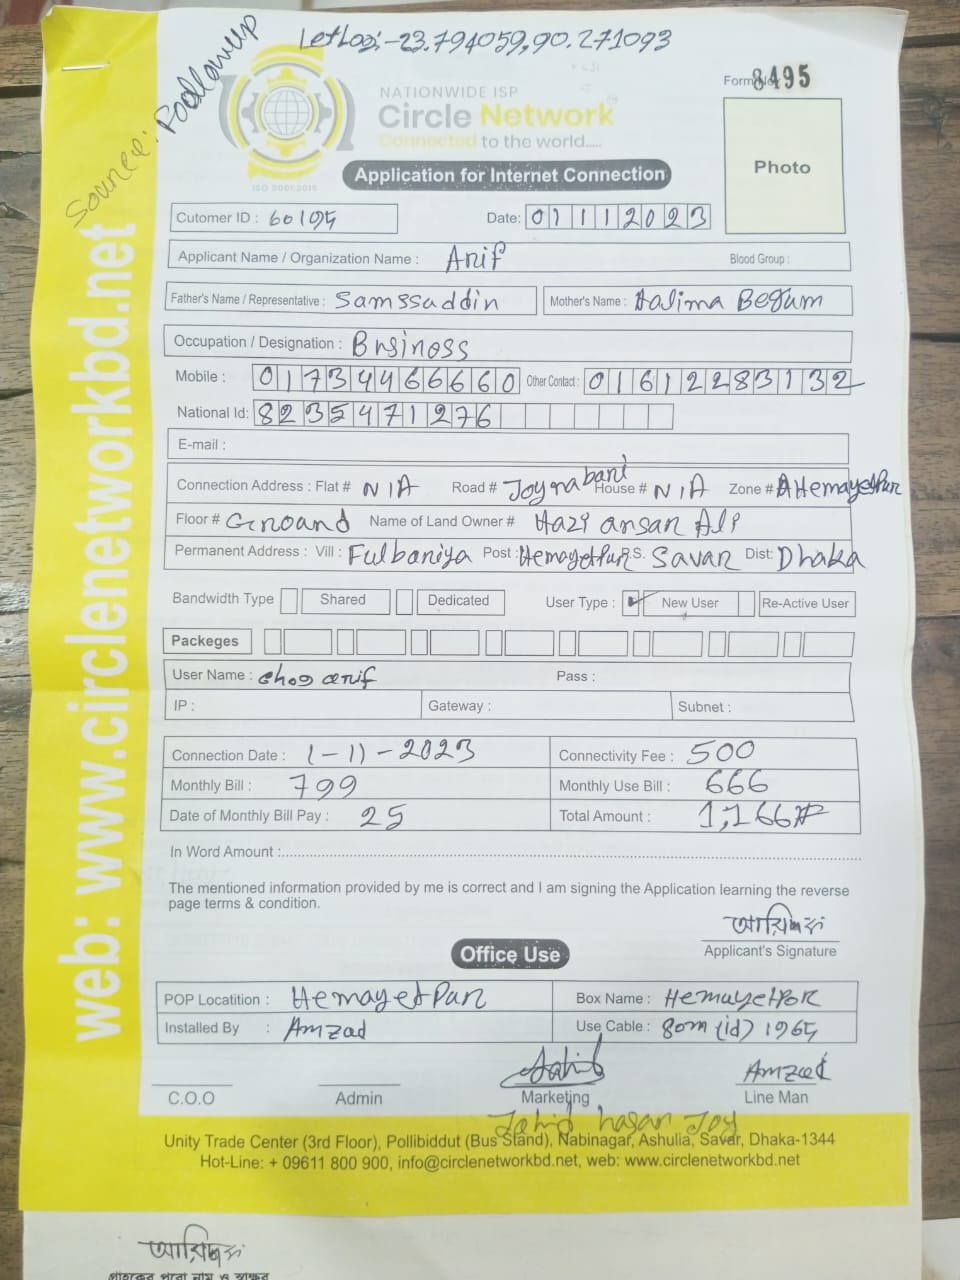 LetLog:-23.794059,90.271093
Source: Foollowup
NATIONWIDE ISP
Form No. 8495
Circle Network
Connected to the world.....
ISO 9001:2015
Application for Internet Connection
Photo
Cutomer ID : 60195
Date: 01112023
Applicant Name / Organization Name : Arif
Blood Group :
Father's Name / Representative : Samssuddin
Mother's Name : Halima Begum
Occupation / Designation : Brsiness
Mobile : 01734466660
Other Contact : 01612283132
National Id: 8235471276
E-mail :
Connection Address : Flat # N/A Road # Joynabani House # N/A Zone # Hemayetpur
Floor # Groand Name of Land Owner # Hazi ansar Ali
Permanent Address : Vill : Fulbariya Post : Hemayetpur P.S. Savar Dist: Dhaka
Bandwidth Type Shared Dedicated User Type : New User Re-Active User
Packeges
User Name : Pass :
IP : Gateway : Subnet :
Connection Date : 1-11-2023 Connectivity Fee : 500
Monthly Bill : 799 Monthly Use Bill : 666
Date of Monthly Bill Pay : 25 Total Amount : 1,166
In Word Amount :
The mentioned information provided by me is correct and I am signing the Application learning the reverse
page terms & condition.
Applicant's Signature
Office Use
POP Locatition : Hemayetpur Box Name : Hemayetpor
Installed By : Amzad Use Cable : 80m (id) 1965
Amzad
C.O.O Admin Marketing Line Man
Jahid hasan Joy
Unity Trade Center (3rd Floor), Pollibiddut (Bus Stand), Nabinagar, Ashulia, Savar, Dhaka-1344
Hot-Line: + 09611 800 900, info@circlenetworkbd.net, web: www.circlenetworkbd.net
web: www.circlenetworkbd.net